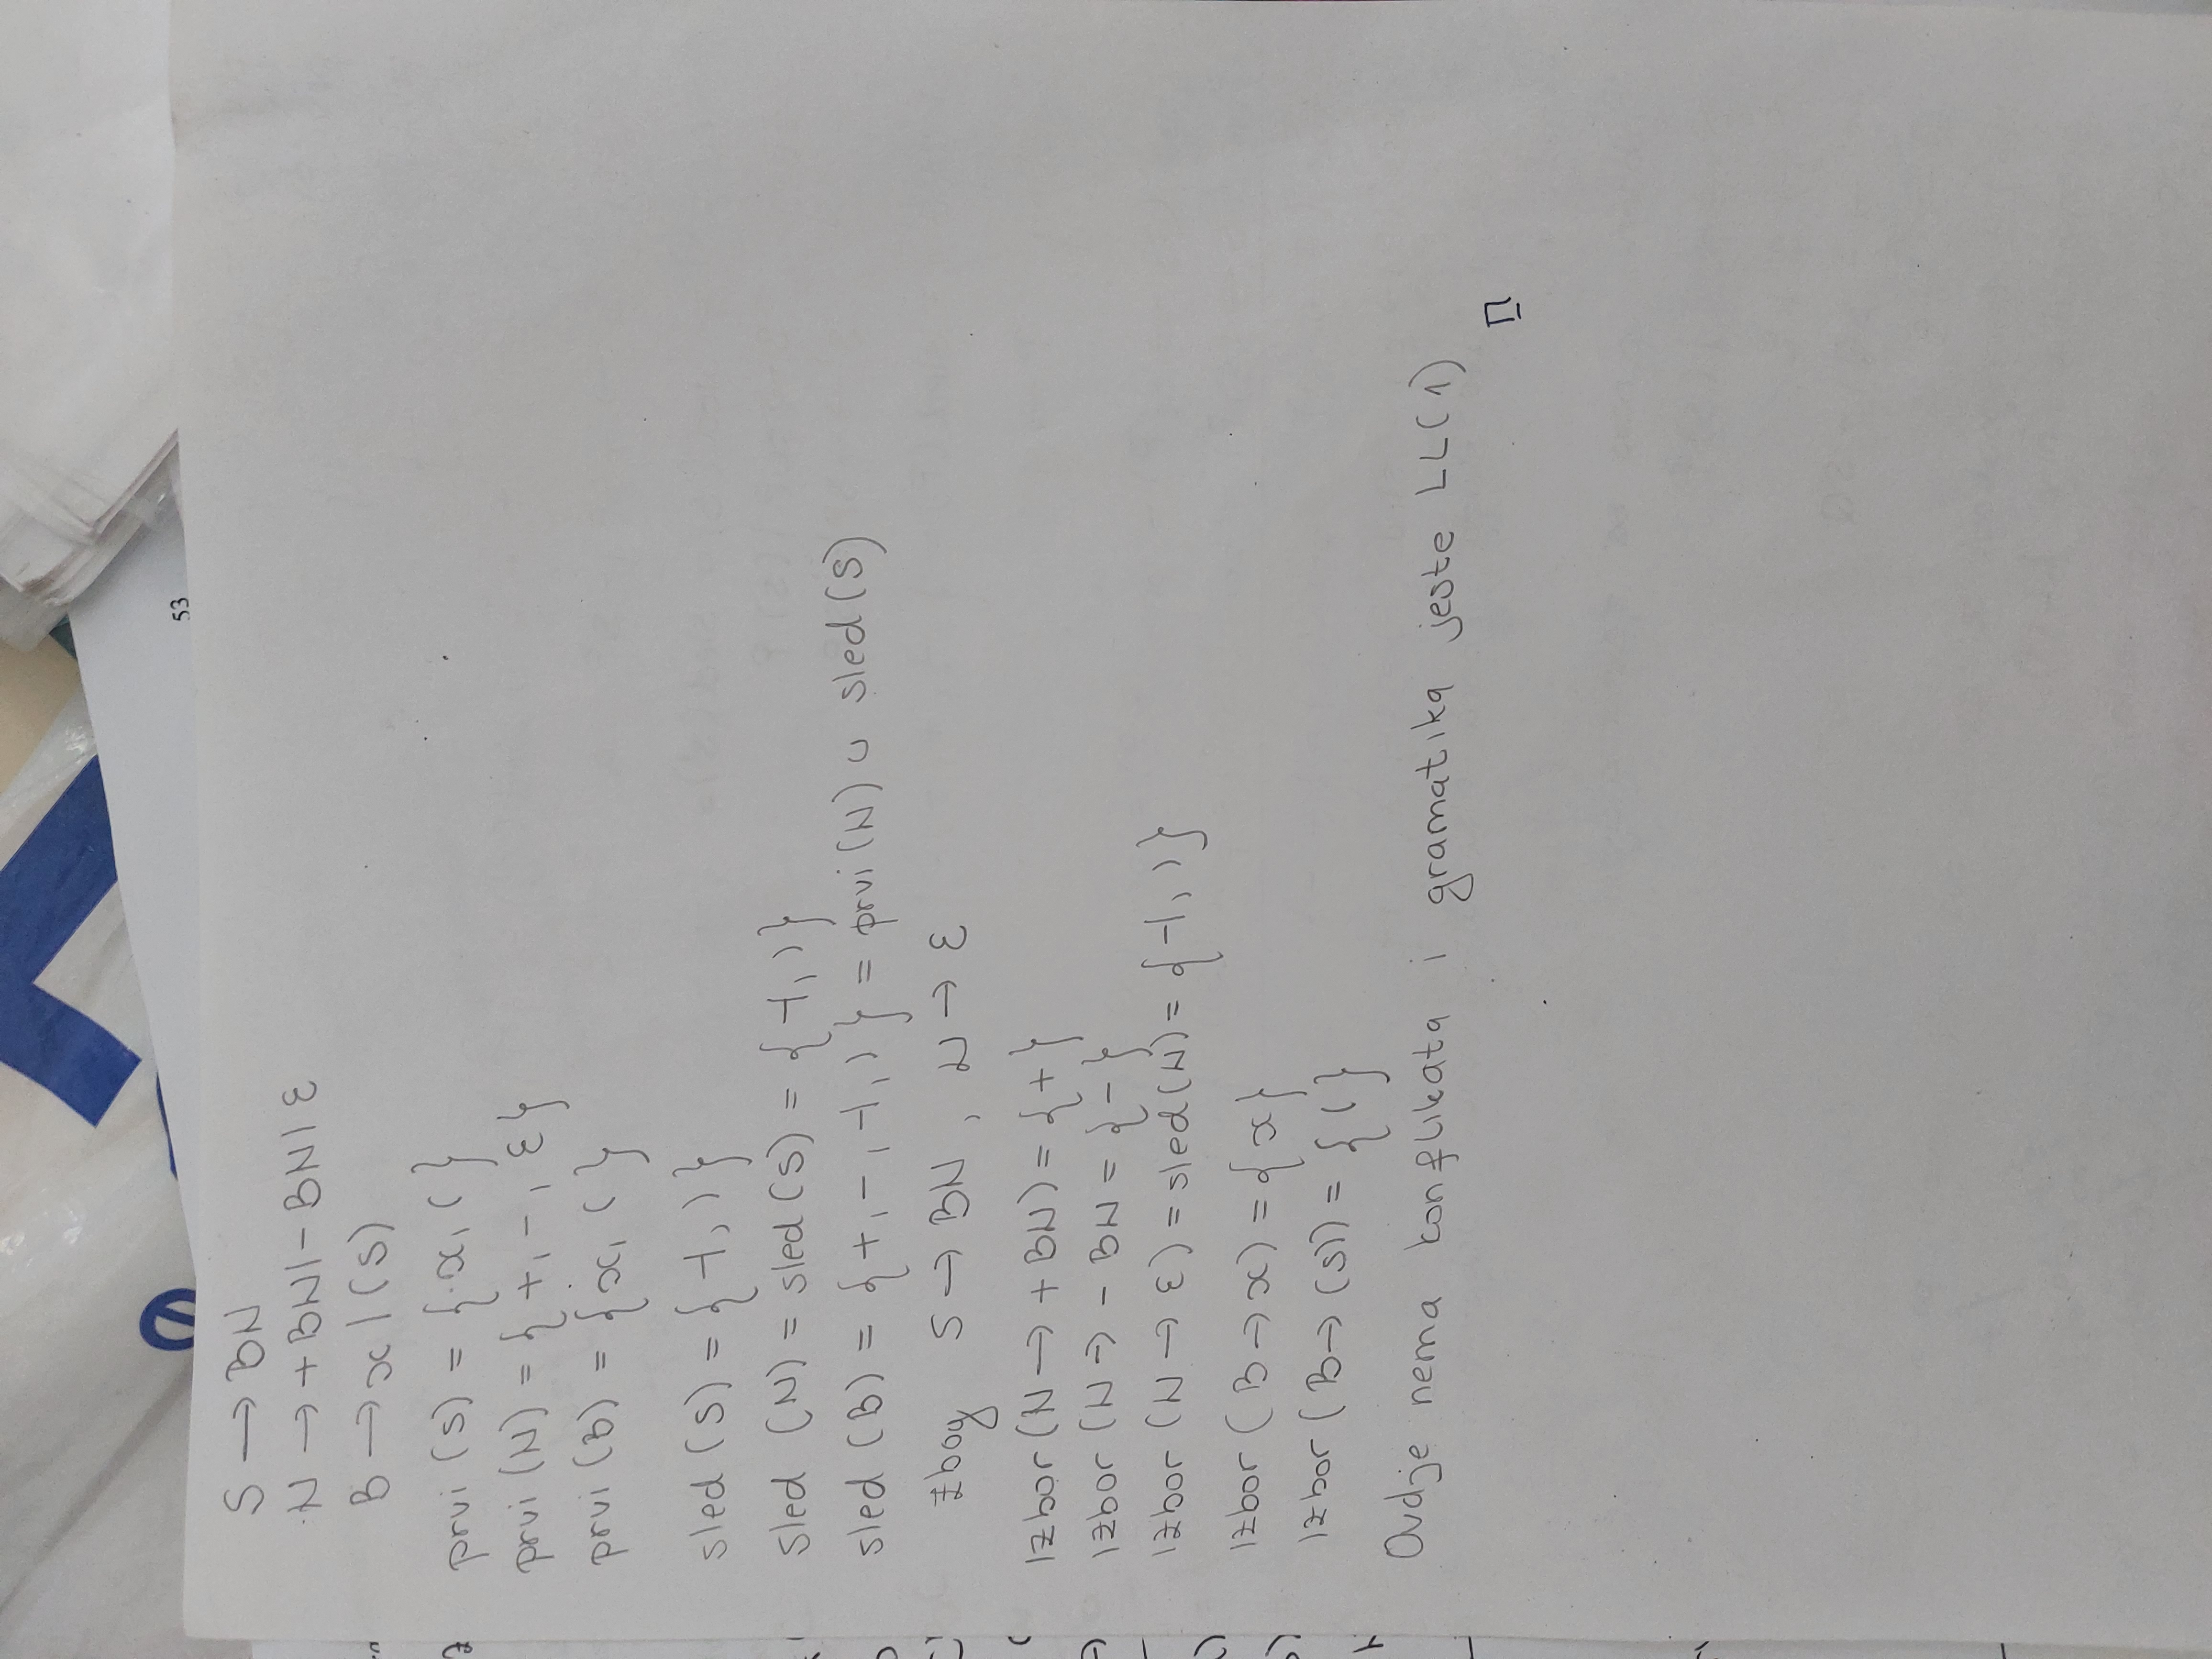 53
S → BN
N → +BN|-BN|ε
B → x|(S)
prvi (S) = {x, ( }
prvi (N) = { +, -, ε}
prvi (B) = {x, ( }
sled (S) = { ⊣, ) }
sled (N) = sled (S) = { ⊣, ) }
sled (B) = { +, -, ⊣, ) } = prvi (N) ∪ sled (S)
zbog S → BN, N → ε
Izbor (N → + BN) = { + }
Izbor (N → - BN = { - }
Izbor (N → ε) = sled (N) = { ⊣, ) }
Izbor ( B → x) = {x}
Izbor ( B → (S)) = { ( }
Ovdje nema konflikata i gramatika jeste LL(1)
□